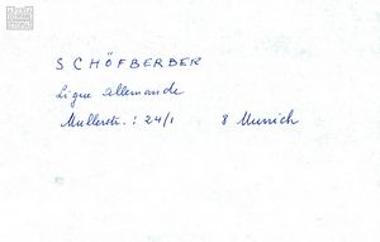 SCHÖFBERBER
Ligue Allemande
Mullerstr. : 24/1 8 Munich